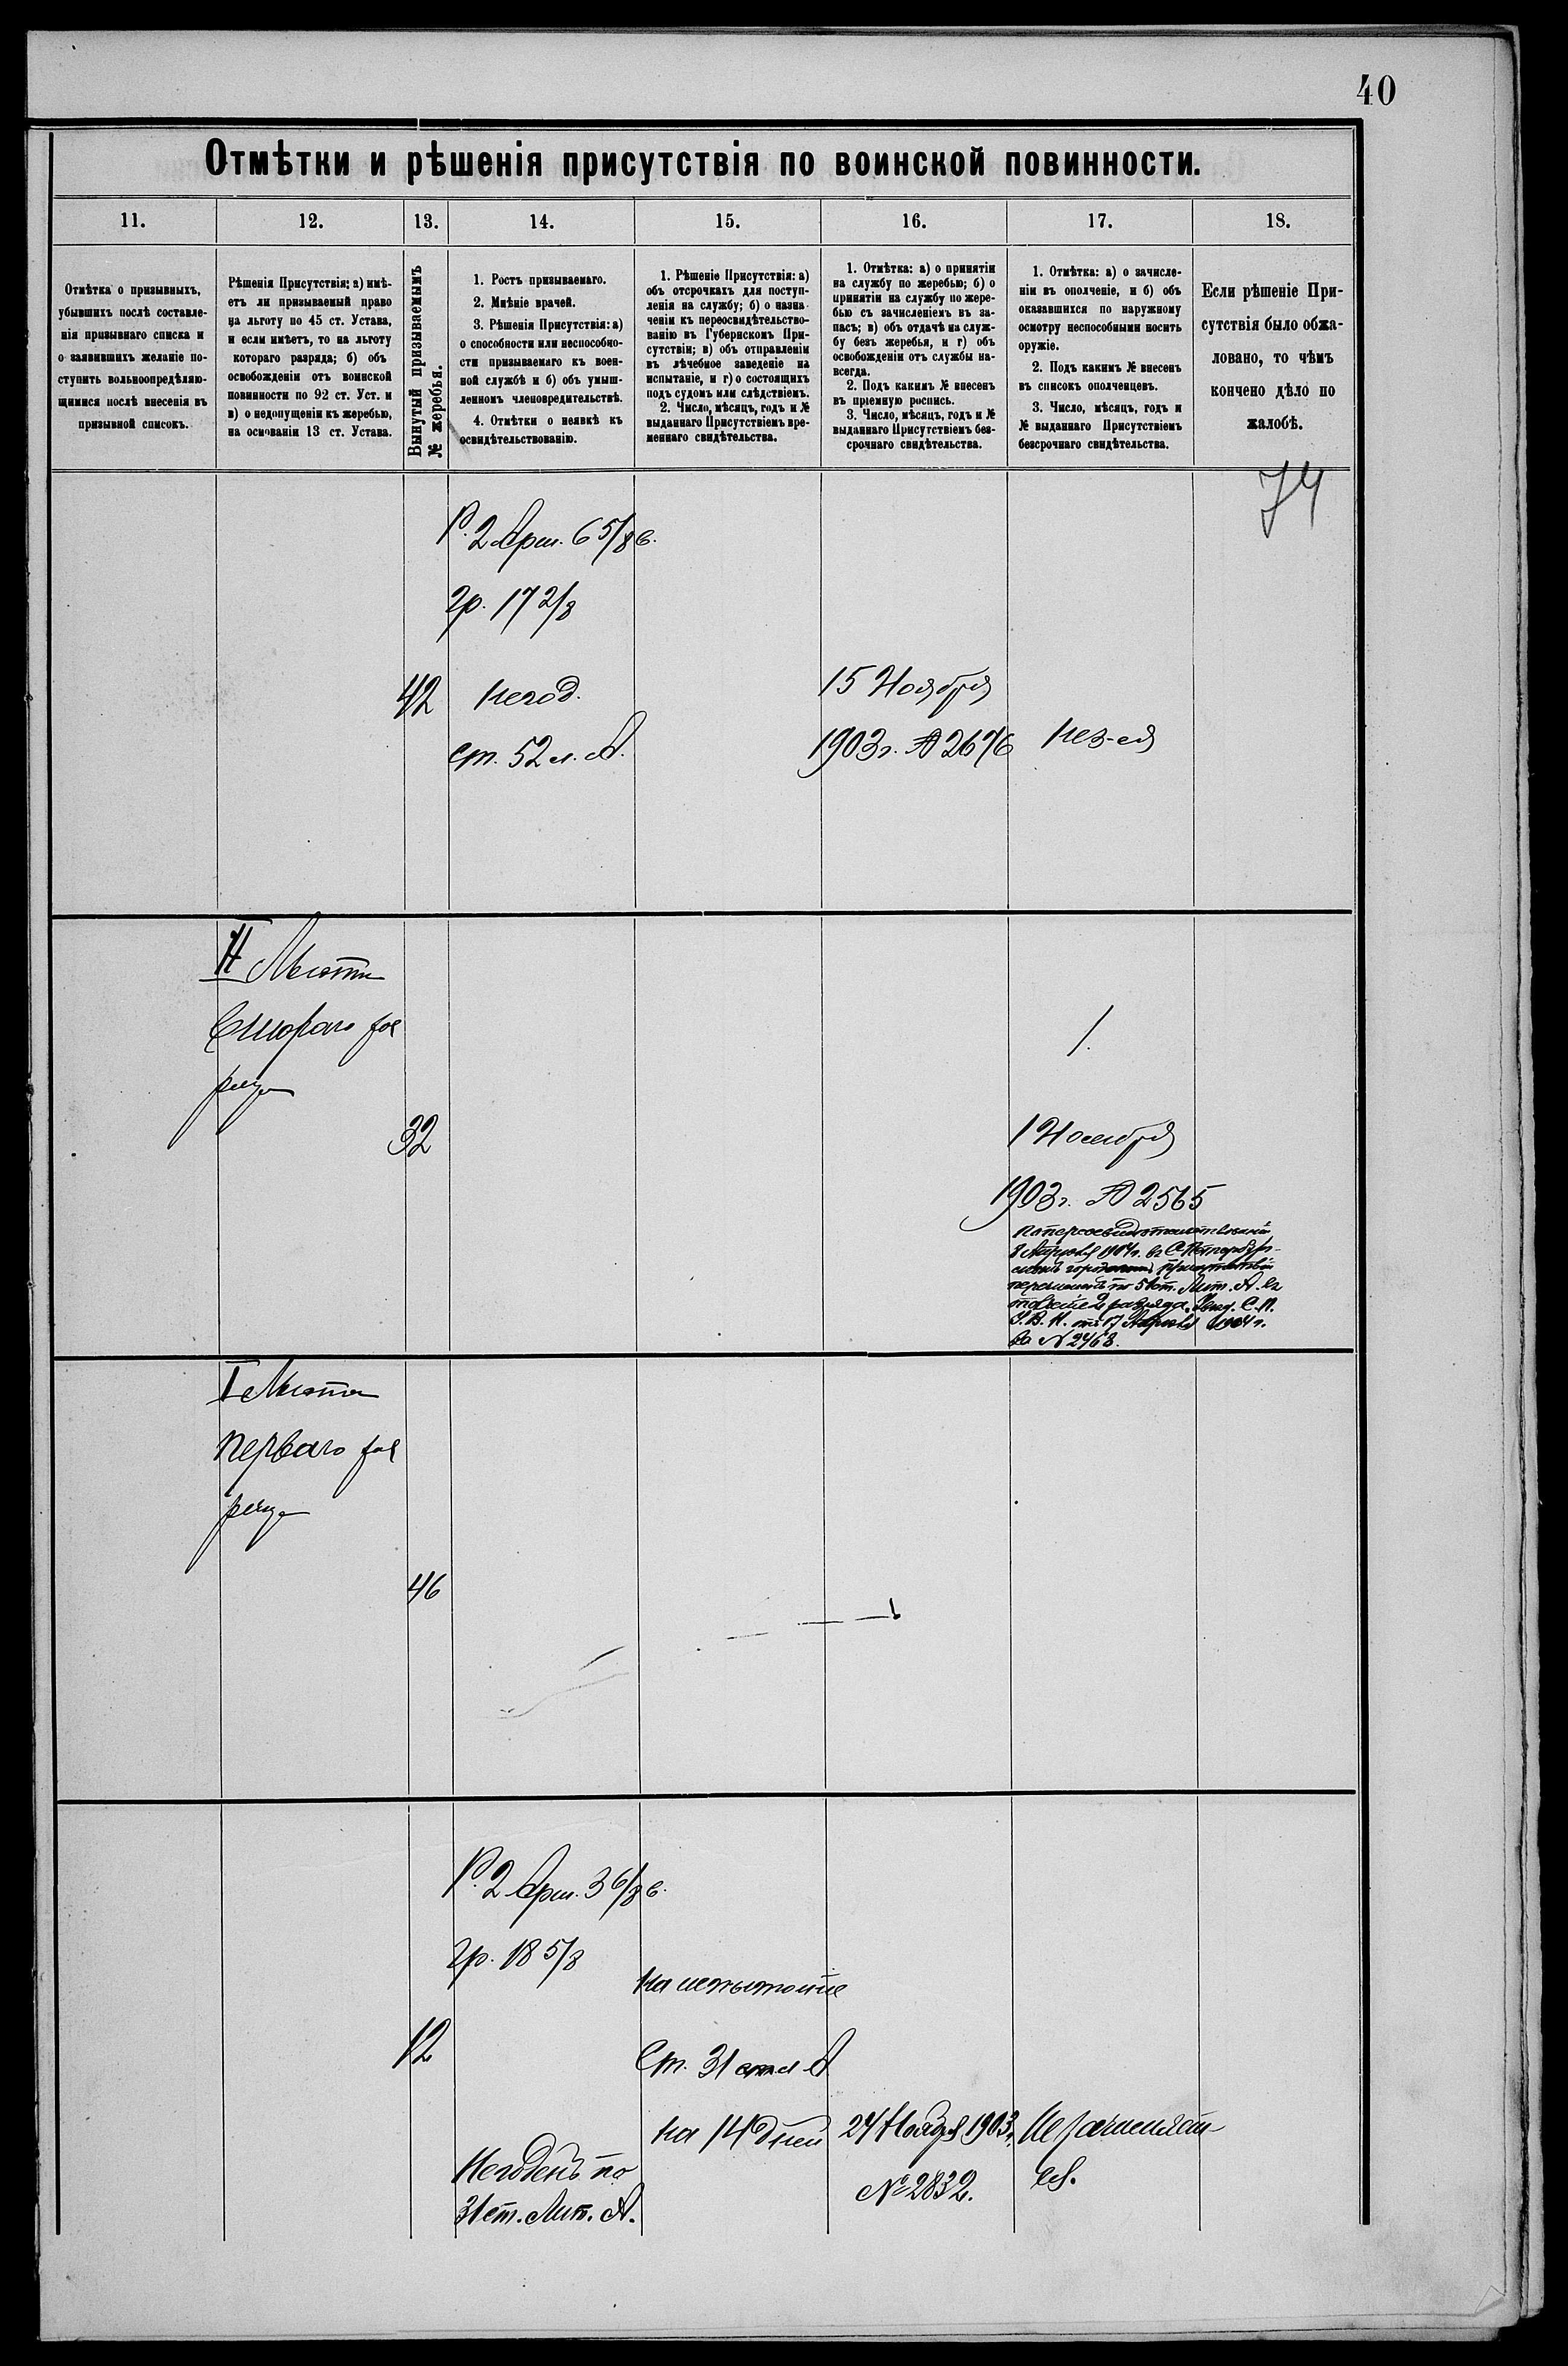 40
Отмѣтки и рѣшенія присутствія по воинской повинности.
11.
12.
13.
14.
15.
16.
17.
18.
Отмѣтка о призывныхъ,
убывшихъ послѣ составле-
нія призывнаго списка и
о заявившихъ желаніе по-
ступить вольноопредѣляю-
щимися послѣ внесенія въ
призывной списокъ.
Рѣшенія Присутствія: а) имѣ-
етъ ли призываемый право
на льготу по 45 ст. Устава,
и если имѣетъ, то на льготу
котораго разряда; б) объ
освобожденіи отъ воинской
повинности по 92 ст. Уст. и
в) о недопущеніи къ жеребью,
на основаніи 13 ст. Устава.
Вынутый призываемымъ
№ жеребья.
1. Ростъ призываемаго.
2. Мнѣніе врачей.
3. Рѣшенія Присутствія: а)
о способности или неспособно-
сти призываемаго къ воен-
ной службѣ и б) объ умыш-
ленномъ членовредительствѣ.
4. Отмѣтки о неявкѣ къ
освидѣтельствованію.
1. Рѣшеніе Присутствія: а)
объ отсрочкахъ для поступ-
ленія на службу; б) о назна-
ченіи къ переосвидѣтельство-
ванію въ Губернскомъ При-
сутствіи; в) объ отправленіи
въ лѣчебное заведеніе на
испытаніе, и г) о состоящихъ
подъ судомъ или слѣдствіемъ.
2. Число, мѣсяцъ, годъ и №
выданнаго Присутствіемъ вре-
меннаго свидѣтельства.
1. Отмѣтка: а) о принятіи
на службу по жеребью; б) о
принятіи на службу по жере-
бью съ зачисленіемъ въ за-
пасъ; в) объ отдачѣ на служ-
бу безъ жеребья, и г) объ
освобожденіи отъ службы на-
всегда.
2. Подъ какимъ № внесенъ
въ пріемную роспись.
3. Число, мѣсяцъ, годъ и №
выданнаго Присутствіемъ без-
срочнаго свидѣтельства.
1. Отмѣтка: а) о зачисле-
ніи въ ополченіе, и б) объ
оказавшихся по наружному
осмотру неспособными носить
оружіе.
2. Подъ какимъ № внесенъ
въ списокъ ополченцевъ.
3. Число, мѣсяцъ, годъ и
№ выданнаго Присутствіемъ
безсрочнаго свидѣтельства.
Если рѣшеніе При-
сутствія было обжа-
ловано, то чѣмъ
кончено дѣло по
жалобѣ.
74
Р. 2 Арш. 6 5/8 в.
гр. 17 2/8
42
негод.
ст. 52 л. А.
15 Ноября
1903 г. № 2676
нез-ся
II Льгота
Второго раз
ряда
32
1.
1 Ноября
1903 г. № 2565
По переосвидѣтельствованіи
8 Апрѣля 1904 г. въ С. Петербург-
скомъ городскомъ присутствіи
ст. Лит. А. въ
2 разряда. С. П.
Г. В. П. отъ 17 Апрѣля 1904 г.
за № 2468.
I Льгота
перваго раз
ряда
46
Р. 2 Арш. 3 6/8 в.
гр. 18 5/8
на испытаніе
12
Ст. 31 л А
на 14 дней
24 Ноября 1903 г.
№ 2832.
Не зачисляет
ся.
Негоденъ по
31 ст. Лит. А.